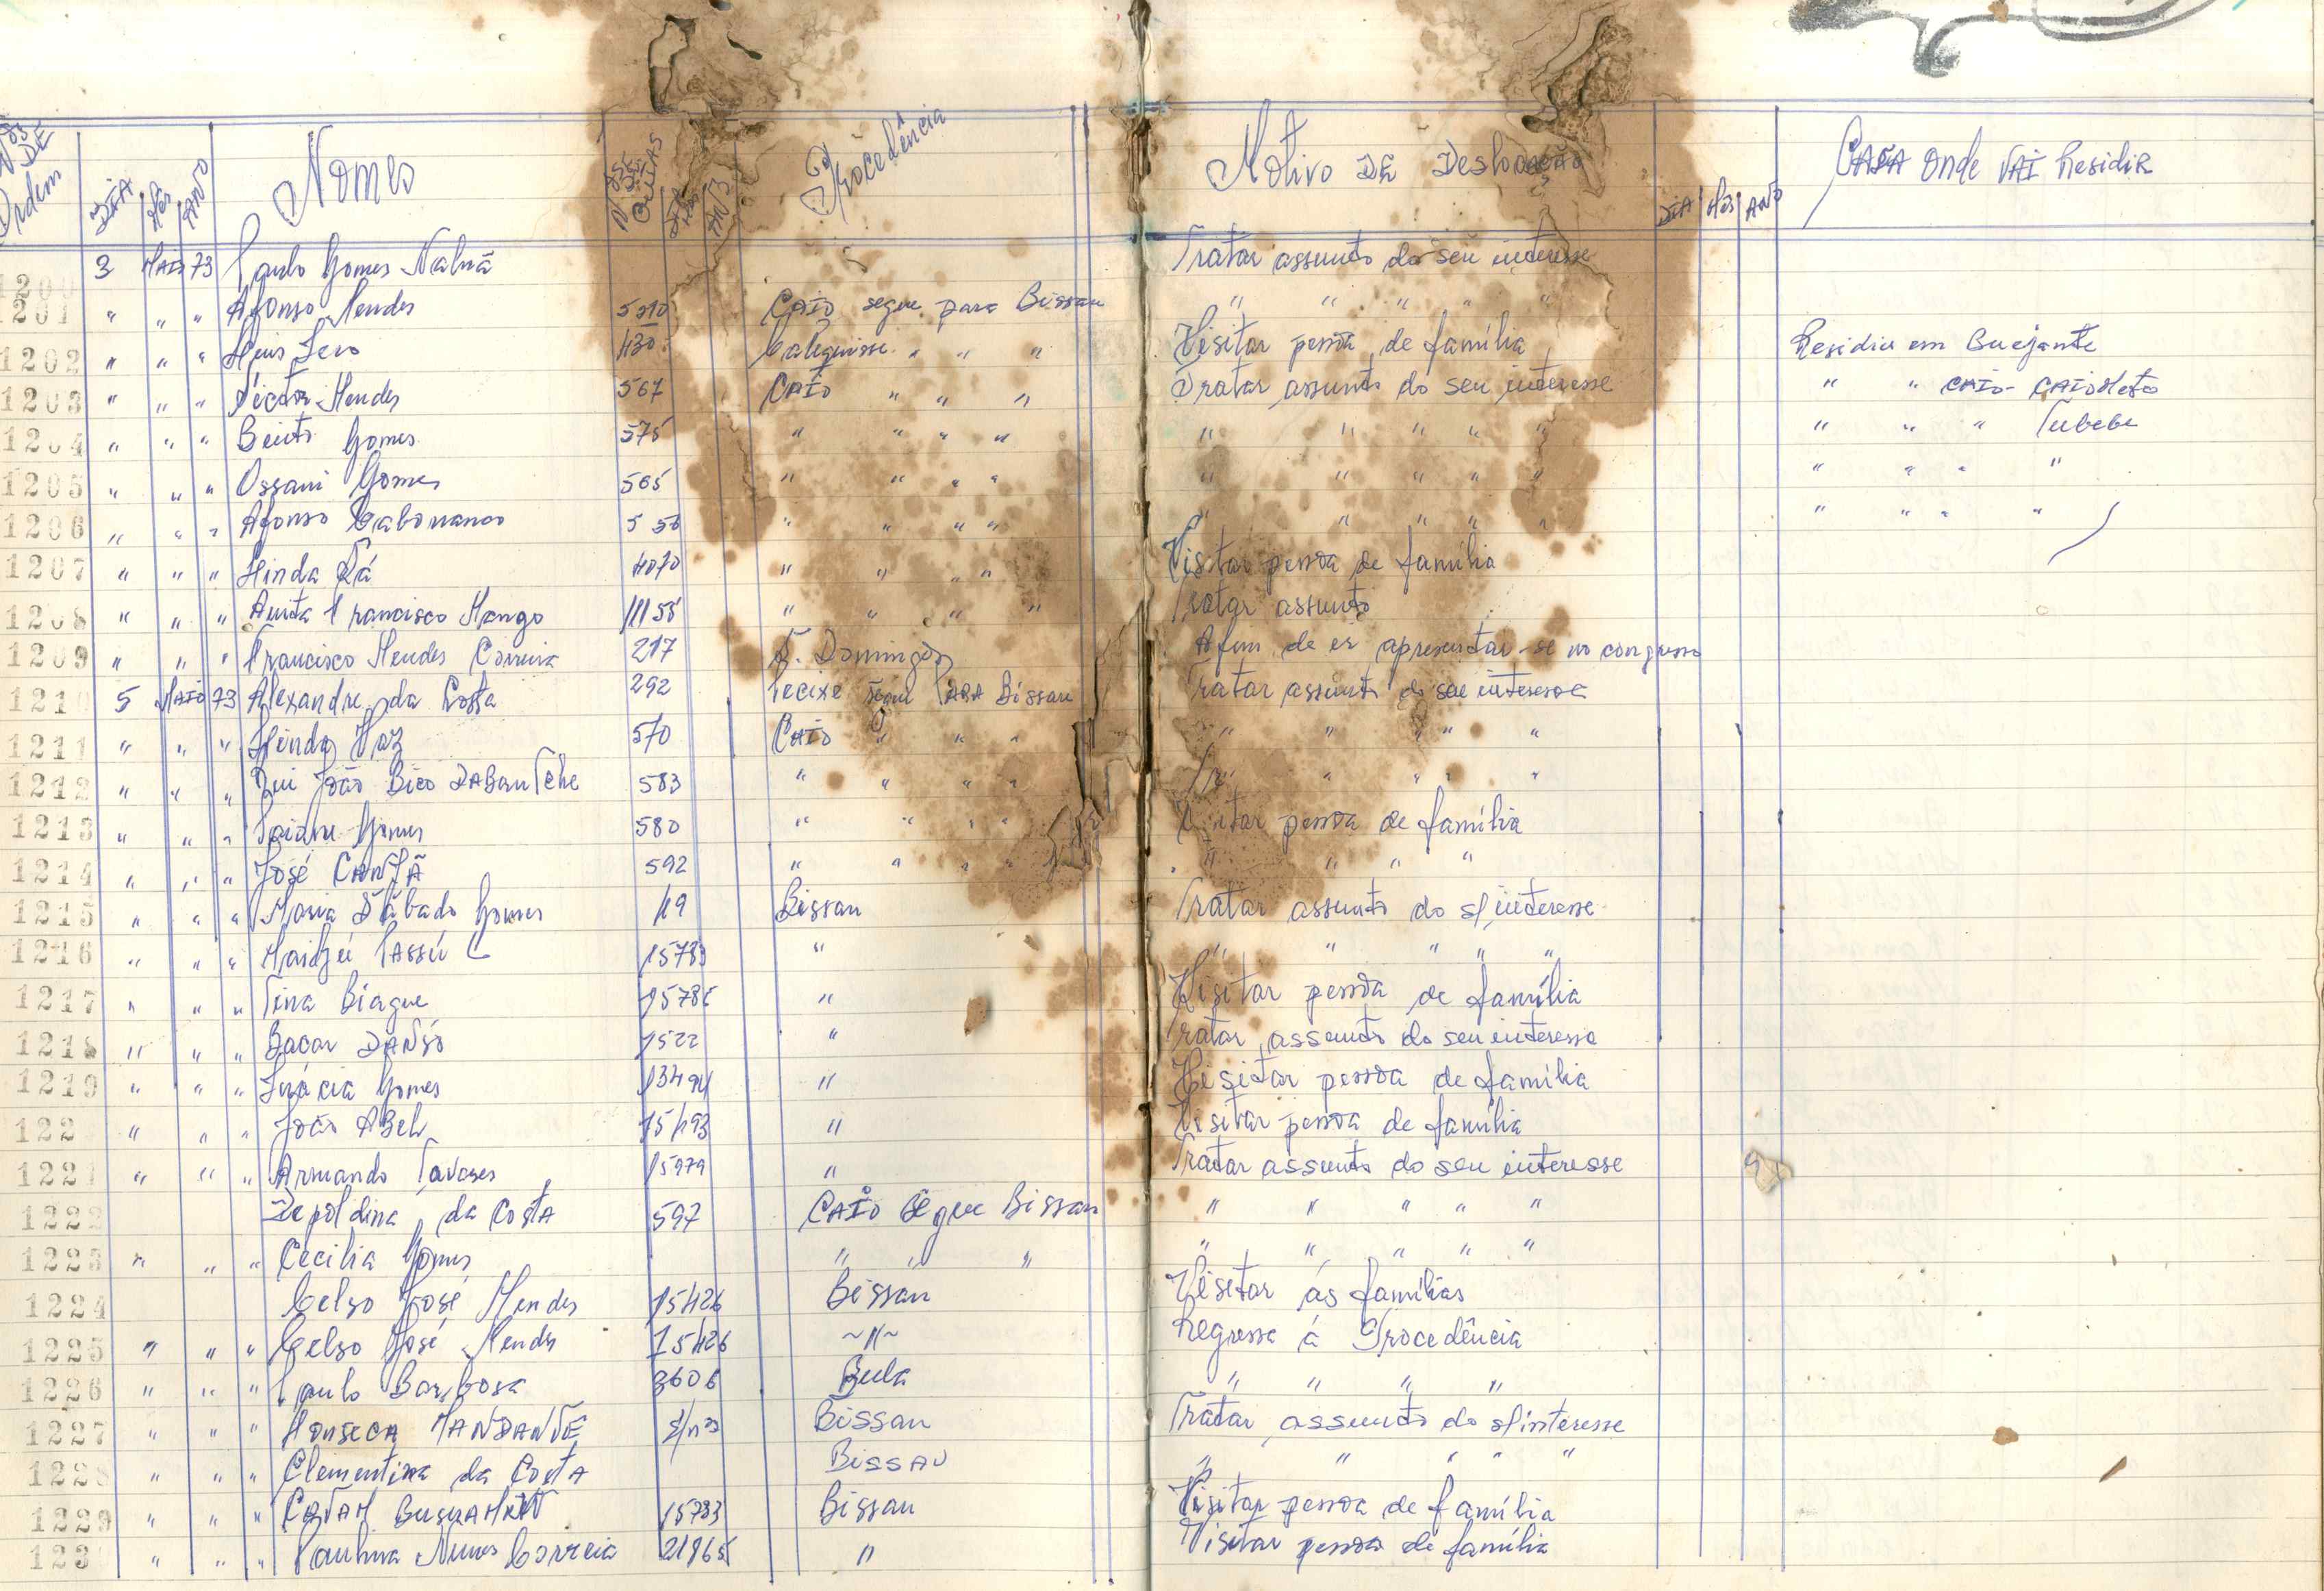 Nos DE Ordem DIA Mês ANO Nomes Nos DE GUIAS DIA Mês ANO Procedência Motivo DE Deslocação DIA Mês ANO CASA Onde VAI Residir
1200 3 MAIO 73 Paulo Gomes Nabuã Tratar assunto do seu interesse
1201 " " " Afonso Mendes 5010 CAIO segue para Bissau " " " " "
1202 " " " 430 Calequisse " " " Visitar pessoa de família Residiu em Bucijante
1203 " " " Víctor Mendes 567 CAIO " " " Tratar assunto do seu interesse " " CAIO - CAIOMete
1204 " " " Bento Gomes 575 " " " " " " " " " " " " Tubebe
1205 " " " Ossani Gomes 565 " " " " " " " " " " " " "
1206 " " " Afonso Cabonanco 556 " " " " " " " " " " " " "
1207 " " " Hinda Sá 4070 " " " " Visitar pessoa de família
1208 " " " Anita Francisco Mango 11155 " " " " Tratar assunto
1209 " " " Francisco Mendes Correia 217 S. Domingos Afim de ir apresentar-se no congresso
1210 5 MAIO 73 Alexandre da Costa 292 Pecixe segue PARA Bissau Tratar assunto do seu interesse
1211 " " " Hinda Vaz 570 CAIO " " " " " " " "
1212 " " " Rui João Bico DABanTche 583 " " " " " " " "
1213 " " " Gomes 580 " " " " Visitar pessoa de família
1214 " " " José CANJÃ 592 " " " " " " " "
1215 " " " Maria Sábado Gomes 49 Bissau Tratar assunto do s/interesse
1216 " " " PASSú 15783 " " " " " "
1217 " " " Tina Biague 1578 " Visitar pessoa de família
1218 " " " Bacar DANSó 1522 " Tratar assunto do seu interesse
1219 " " " Inácia Gomes 13494 " Visitar pessoa de família
122 " " " João ABel 15493 " Visitar pessoa de família
1221 " " " Armando Tavares 15979 " Tratar assunto do seu interesse
1222 Depoldina da Costa 597 CAIO Segue Bissau " " " " "
1223 " " " Cecilia Gomes " " " " " " " "
1224 Celso José Mendes 15426 Bissau Visitar ás famílias
1225 " " " Celso José Mendes 15426 ~"~ Regresse á Procedência
1226 " " " Paulo Barbosa 3606 Bula " " " "
1227 " " " FonsecA MANDANTE s/nº Bissau Tratar assunto do s/interesse
1228 " " " Clementina da Costa BissAU " " " " "
1229 " " " 15783 Bissau Visitar pessoa de família
123 " " " Paulina Nunes Correia 21865 " Visitar pessoa de família